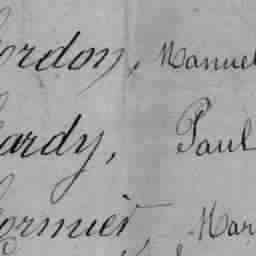 Cordon, Manuel
Hardy, Paul
Cormier, Mar